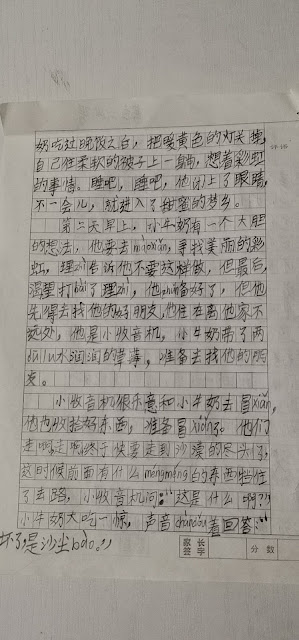 奶吃过晚饭之后，把暖黄色的灯关掉，
自己往柔软的被子上一躺，想着彩虹
的事情。睡吧，睡吧，他闭上了眼睛，
不一会儿，就进入了甜蜜的梦乡。
第二天早上，小牛奶有一个大胆
的想法，他要去màoxiǎn，寻找美丽的彩
虹，理zhì告诉他不要这样做，但最后，
渴望打bài了理zhì，他zhǔn备好了，但他
先得去找他的好朋友，他住在离他家不
远处，他是小收音机，小牛奶带了两
水润润的草莓，准备去找他的朋
友。
小收音机很乐意和小牛奶去冒xiǎn，
他两收拾好东西，准备冒xiǎn。他们
走啊走啊终于快要走到沙漠的尽头了，
这时候前面有什么méngméng的东西挡住
了去路，小收音机问：“这是什么啊？”
小牛奶大吃一惊，声音chàndǒu着回答：“
坏了，是沙尘bào。”
评语
家长
签字
分数